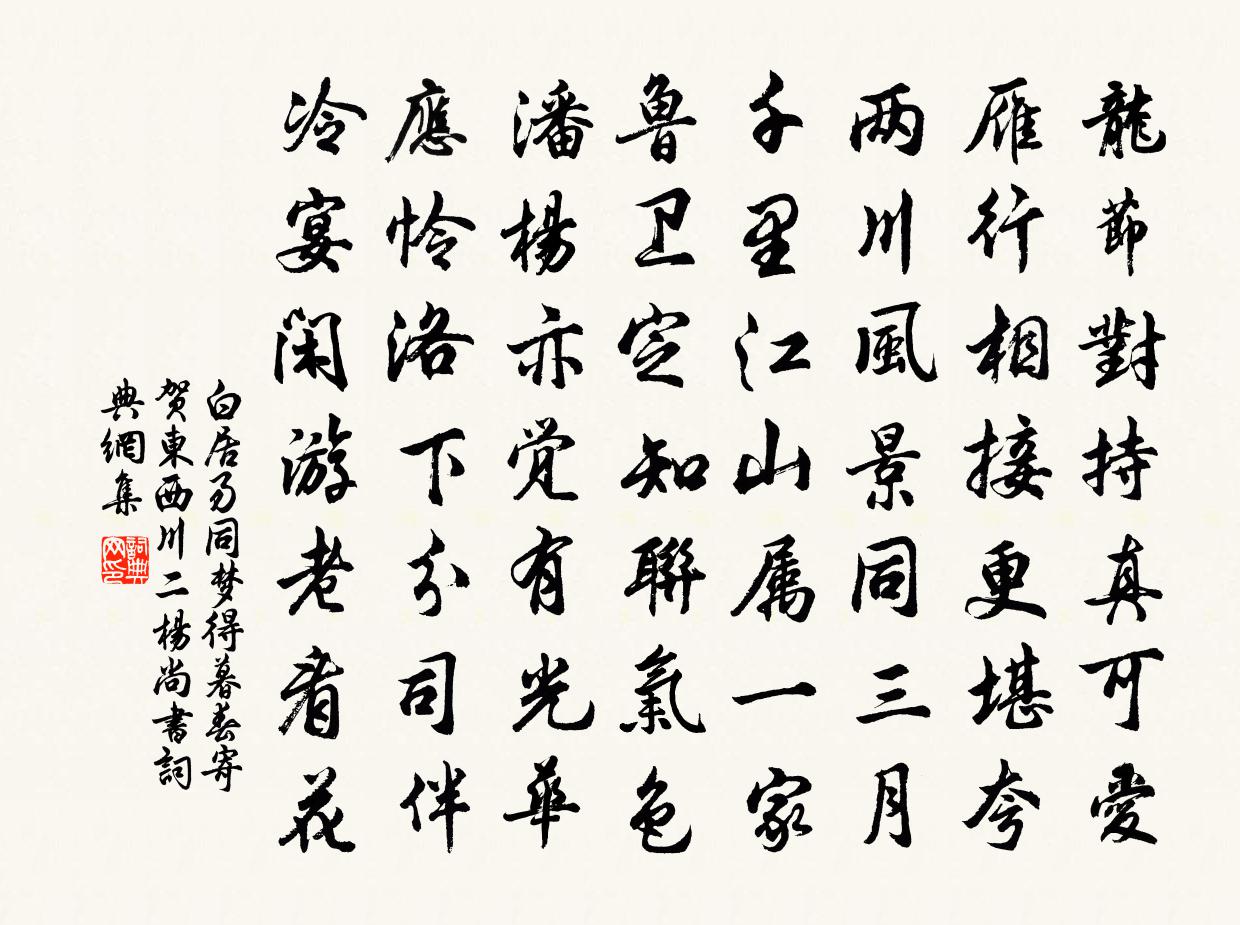 龍節對持真可愛
雁行相接更堪夸
两川風景同三月
千里江山属一家
魯卫定知聯氣色
潘楊亦觉有光華
應怜洛下分司伴
冷宴闲游老看花
白居易同梦得暮春寄
贺東西川二楊尚書詞
典網集
詞典
网印